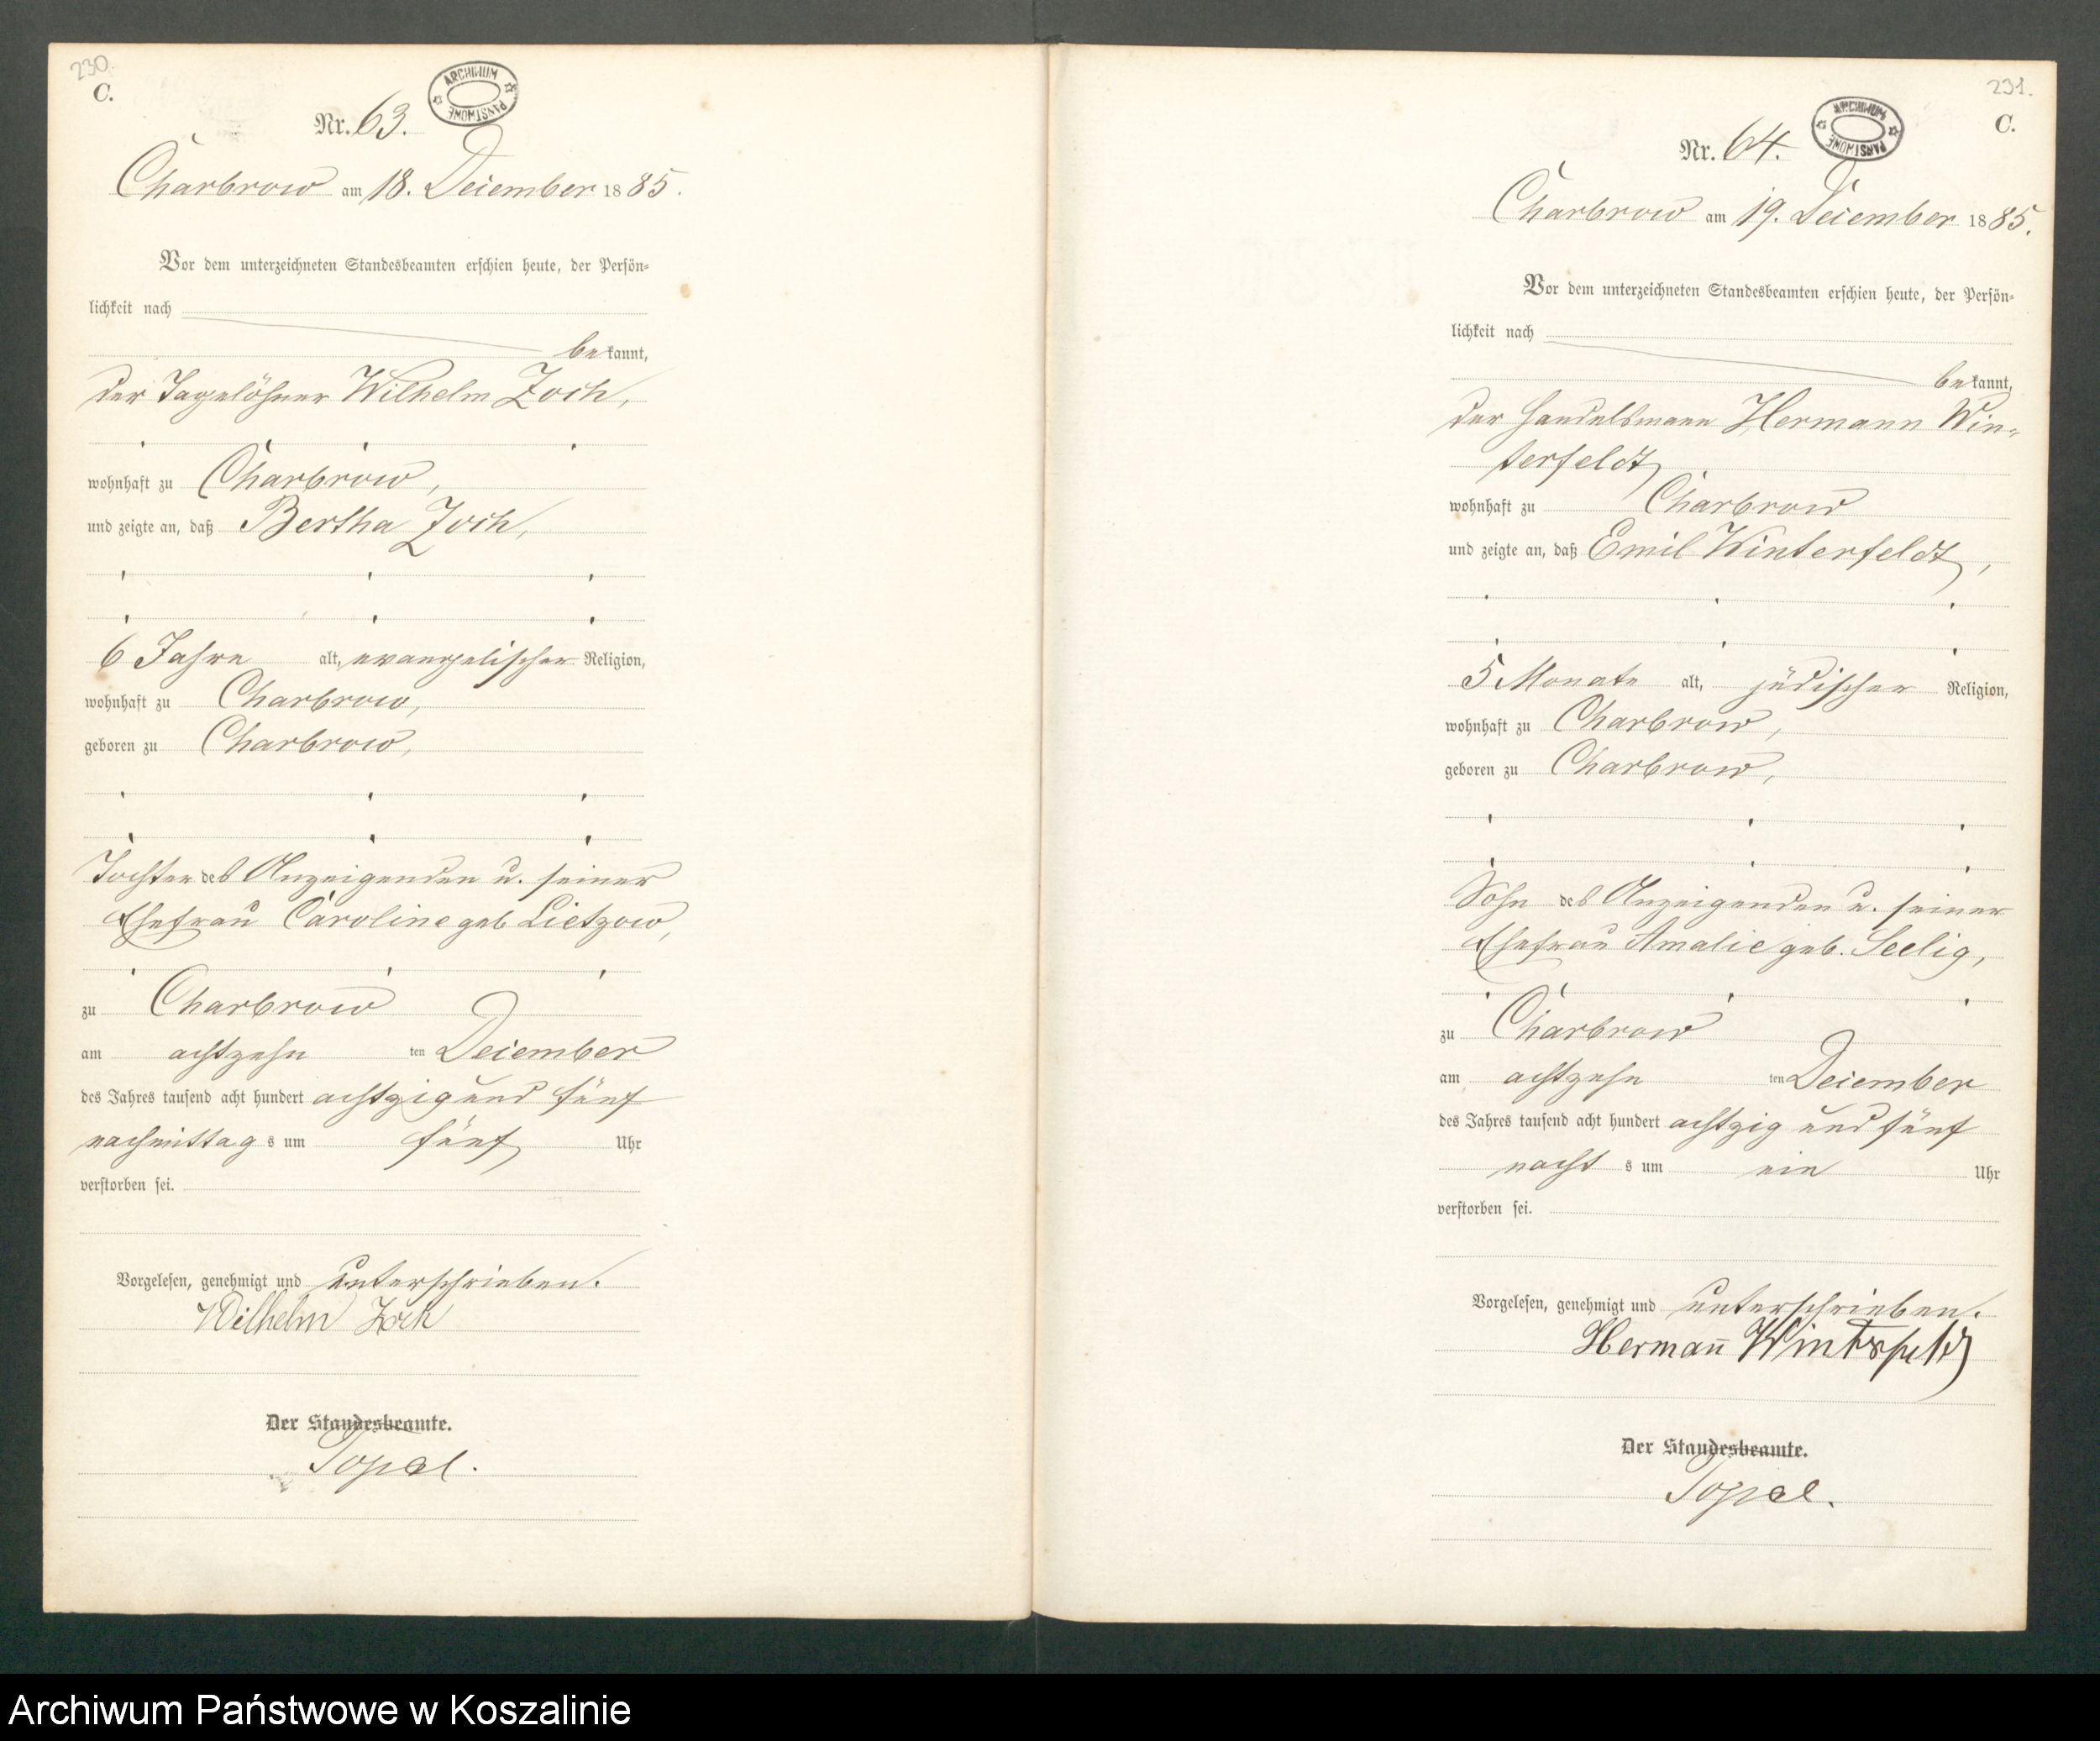 230.
C.
ARCHIWUM PAŃSTWOWE
Nr. 63.
Charbrow am 18. December 1885.
Vor dem unterzeichneten Standesbeamten erschien heute, der Persön=
lichkeit nach
bekannt,
der Tagelöhner Wilhelm Zoch,
wohnhaft zu Charbrow,
und zeigte an, daß Bertha Zoch,
6 Jahre alt, evangelischer Religion,
wohnhaft zu Charbrow,
geboren zu Charbrow,
Tochter des Anzeigenden u. seiner
Ehefrau Caroline geb Lietzow,
zu Charbrow
am achtzehn ten December
des Jahres tausend acht hundert achtzig und fünf
nachmittag s um fünf Uhr
verstorben sei.
Vorgelesen, genehmigt und unterschrieben.
Wilhelm Zoch
Der Standesbeamte.
231.
C.
ARCHIWUM PAŃSTWOWE
Nr. 64.
Charbrow am 19. December 1885.
Vor dem unterzeichneten Standesbeamten erschien heute, der Persön=
lichkeit nach
bekannt,
der Handelsmann Hermann Win=
terfeldt
wohnhaft zu Charbrow
und zeigte an, daß Emil Winterfeldt,
5 Monate alt, jüdischer Religion,
wohnhaft zu Charbrow,
geboren zu Charbrow,
Sohn des Anzeigenden u. seiner
Ehefrau Amalie geb. Seelig,
zu Charbrow
am achtzehn ten December
des Jahres tausend acht hundert achtzig und fünf
nacht s um ein Uhr
verstorben sei.
Vorgelesen, genehmigt und unterschrieben.
Hermann̄ Winterfeldt
Der Standesbeamte.
Archiwum Państwowe w Koszalinie